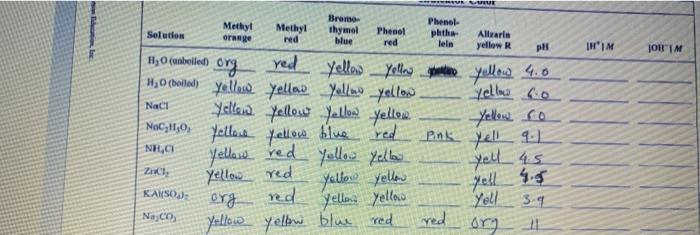 Indicator Color
Solution Methyl orange Methyl red Bromo-thymol blue Phenol red Phenol-phtha-lein Alizarin yellow R pH [H⁺] M [OH⁻] M
H₂O (unboiled) org red Yellow Yellow yellow 4.0
H₂O (boiled) Yellow Yellow Yellow yellow Yellow 6.0
NaCl Yellow Yellow Yellow yellow Yellow 6.0
NaC₂H₃O₂ Yellow yellow blue red Pink Yell 9.1
NH₄Cl Yellow red Yellow Yellow yell 4.5
ZnCl₂ Yellow red Yellow Yellow yell 4.5
KAl(SO₄)₂ org red yellow Yellow Yell 3.9
Na₂CO₃ Yellow yellow blue red red org 11